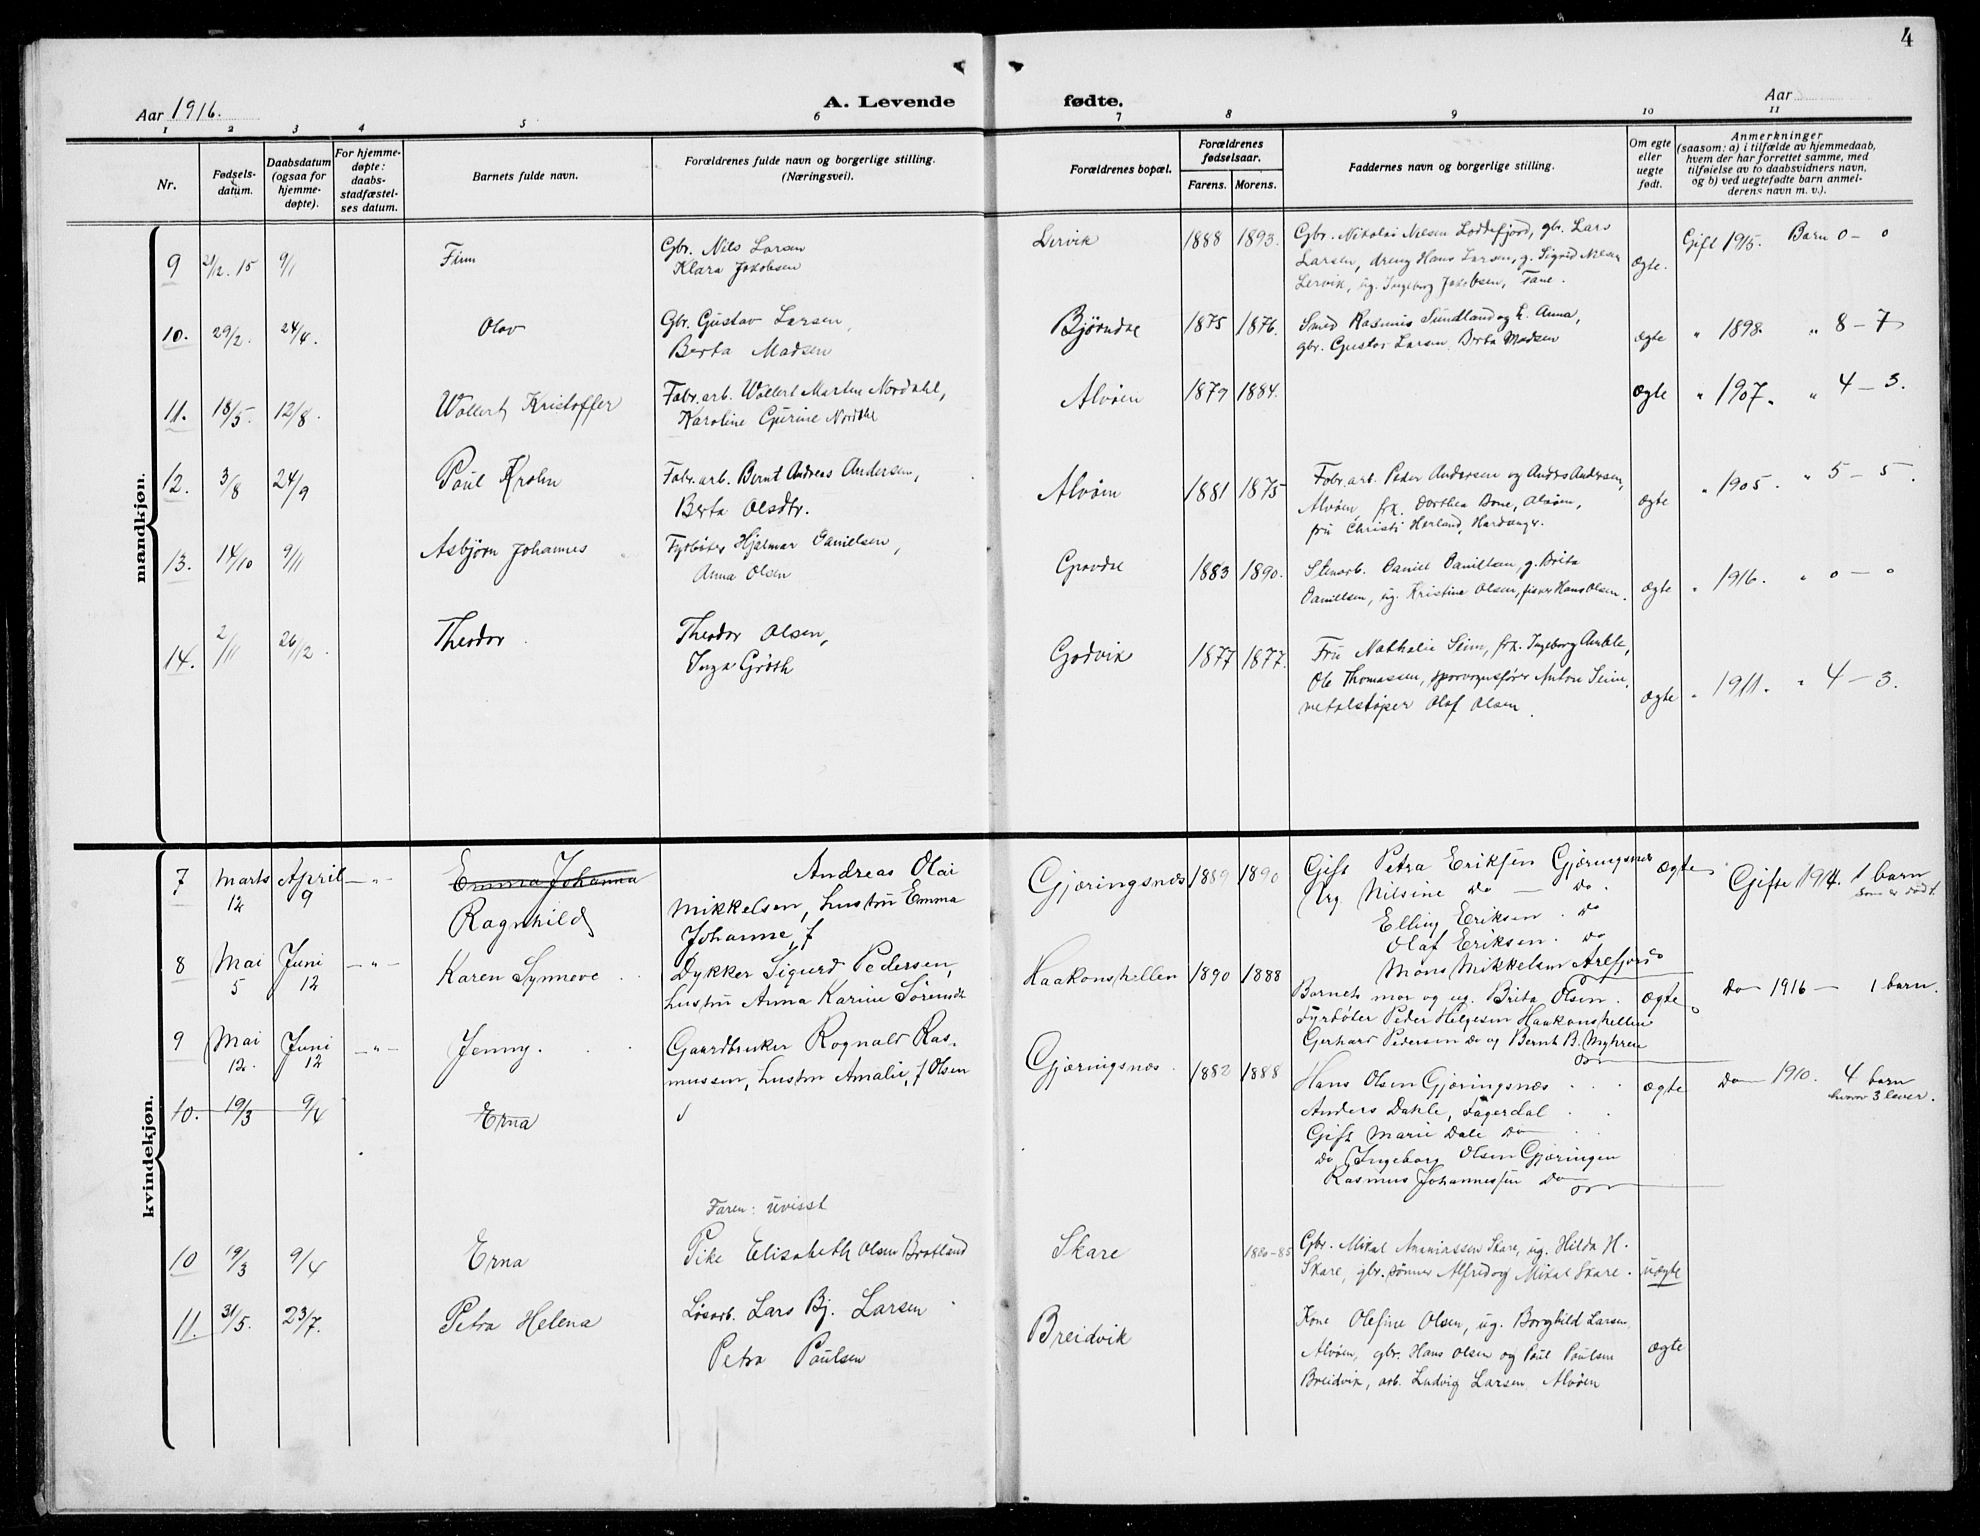 4
Aar 1916.
A. Levende fødte.
Aar
1 2 3 4 5 6 7 8 9 10 11
Nr.
Fødsels-
datum.
Daabsdatum
(ogsaa for
hjemme-
døpte).
For hjemme-
døpte:
daabs-
stadfæstel-
ses datum.
Barnets fulde navn.
Forældrenes fulde navn og borgerlige stilling.
(Næringsvei).
Forældrenes bopæl.
Forældrenes
fødselsaar.
Farens. Morens.
Faddernes navn og borgerlige stilling.
Om egte
eller
uegte
født.
Anmerkninger
(saasom: a) i tilfælde av hjemmedaab,
hvem der har forrettet samme, med
tilføielse av to daabsvidners navn,
og b) ved uegtefødte barn anmel-
derens navn m. v.).
mandkjøn.
9 21/12. 15 9/1 Finn
Gbr. Nils Larsen
Klara Jakobsen
Lervik 1888 1893.
Gbr. Nikolai Nilsen Loddefjord, gbr. Lars
Larsen, dreng Hans Larsen, g. Sigrid Nilsen
Lervik, ug. Ingeborg Jakobsen, Fane.
ægte.
Gift 1915. Barn 0 - 0
10. 29/2. 24/4. Olav
Gbr. Gustav Larsen,
Berta Madsen
Bjørndal 1875 1876.
Smed Rasmus Sundland og h. Anna,
gbr. Gustav Larsen, Berta Madsen
ægte
" 1898. " 8 - 7
11. 18/5. 12/8. Wollert Kristoffer
Fabr. arb. Wollert Martin Nordahl,
Karoline Gurine Nordahl
Alvøen 1879 1884.
ægte
" 1907. " 4 - 3.
12. 3/8 24/9 Paul Krohn
Fabr. arb. Bernt Andreas Andersen,
Berta Olsdtr.
Alvøen 1881 1875
Fabr. arb. Peder Andersen og Andrs Andersen,
Alvøen, frk. Dorthea Bone, Alvøen,
fru Christi Herland, Hardanger.
ægte
" 1905. " 5 - 5.
13. 14/10 9/11 Asbjørn Johannes
Fyrbøter Hjalmar Danielsen,
Anna Olsen
Gravdal 1883 1890.
Stenarb. Daniel Danielsen, g. Brita
Danielsen, ug. Kristine Olsen, fisker Hans Olsen.
ægte
" 1916. " 0 - 0
14. 2/11 26/12. Theodor.
Theodor Olsen,
Inga Grøth
Godvik 1877 1877.
Fru Nathalie Seim, frk. Ingeborg Amble,
Ole Thomassen, sporvognsfører Anton Seim,
metalstøper Olaf Olsen.
ægte
" 1911. " 4 - 3.
kvindekjøn.
7 Marts 12 April 9 - " - Emma Johanna
Ragnhild
Andreas Olai
Mikkelsen, hustru Emma
Johanne f
Gjæringsnes 1889 1890
Gift Petra Eriksen Gjæringsnes
Ug. Nilsine do - do.
Elling Eriksen. do
Olaf Eriksen. do
Mons Mikkelsen Arefjord
ægte
Gifte 1914. 1 barn
som er død.
8 Mai 5 Juni 12 - " - Karen Synnøve
Dykker Sigurd Pedersen,
hustru Anna Karine Sørensdt
Haakonshellen 1890 1888
Barnets mor og ug. Brita Olsen.
Fyrbøter Peder Helgesen Haakonshellen
Gerhard Pedersen do og Bernt B. Myhren
ægte
Do 1916 - 1 barn.
9 Mai 12. Juni 12 - " - Jenny.
Gaardbruker Rognald Ras-
mussen, hustru Amalie, f Olsen
Gjæringsnes. 1882 1888
Hans Olsen Gjæringsnæs
Anders Dahle, Fagerdal
Gift Marie Dale Do
Do Ingeborg Olsen Gjæringen
Rasmus Johannessen Do
ægte
Do 1910. 4 barn
hvorav 3 lever.
10. 19/3 9/4 Erna
Faren: uvisst
10 19/3 9/4 Erna
Pike Elisabeth Olsen Bratland
Skare 1880-85
Gbr. Mikal Ananiassen Skare, ug. Hilda H.
Skare, gbr. sønner Alfred og Mikal Skare.
uægte
11. 31/5. 23/7. Petra Helena
Løsarb. Lars Bj. Larsen
Petra Paulsen
Breidvik
Kone Olefine Olsen, ug. Borghild Larsen,
Alvøen, gbr. Hans Olsen og Paul Paulsen
Breidvik, arb. Ludvig Larsen, Alvøen
ægte